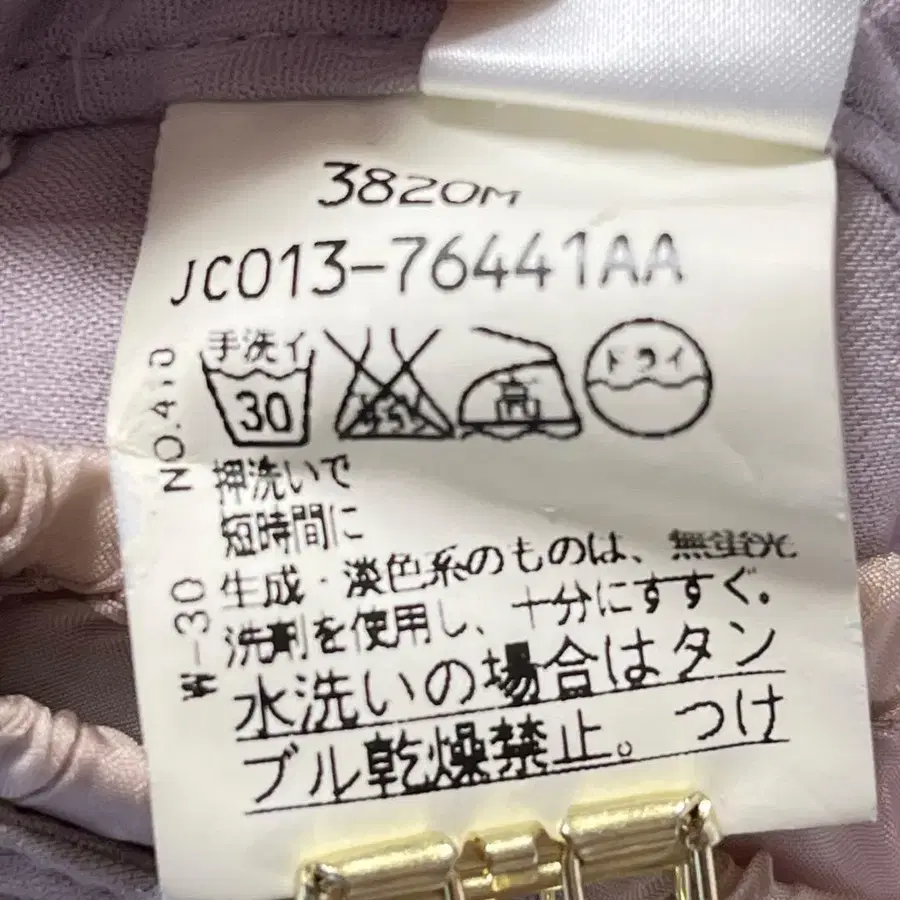 3820M
JC013-76441AA
手洗イ
30
高
ドライ
NO.410
押洗いで
短時間に
W-30
生成・淡色系のものは、無蛍光
洗剤を使用し、十分にすすぐ。
水洗いの場合はタン
ブル乾燥禁止。つけ